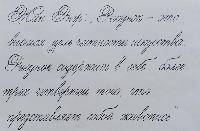 Жан Энгр: „Рисунок - это
высшая целостность искусства.
Рисунок содержит в себе более
трех четвертей того, что
представляет собой живопись"